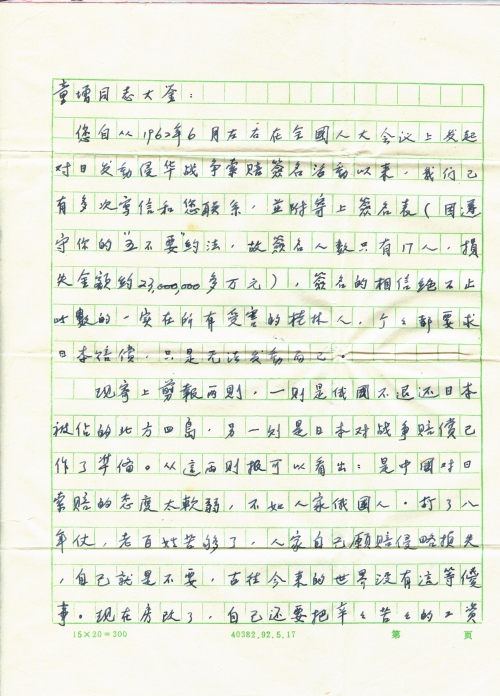 童增同志大鉴：
您自从1962年6月左右在全國人大会议上发起
对日发动侵华战争索赔簽名活动以来，我们已
有多次寄信和您联系，並附寄上簽名表（因遵
守你的"五不要"约法，故簽名人数只有17人，損
失金額約23,000,000多万元），簽名的相信絕不止
此數的一实在所有受害的桂林人，个々都要求
日本赔償，只是无法发動而已。
现寄上剪報两则，一则是俄國不退还日本
被佔的北方四島，另一则是日本对战争赔償已
作了準備。从這两则报可以看出：是中國对日
索赔的态度太軟弱，不如人家俄國人。打了八
年仗，老百姓苦够了，人家自己願赔侵略損失
，自己就是不要，古往今来的世界没有這等傻
事。现在房改了，自己还要把辛々苦々的工資
15×20=300 40382.92.5.17 第 頁